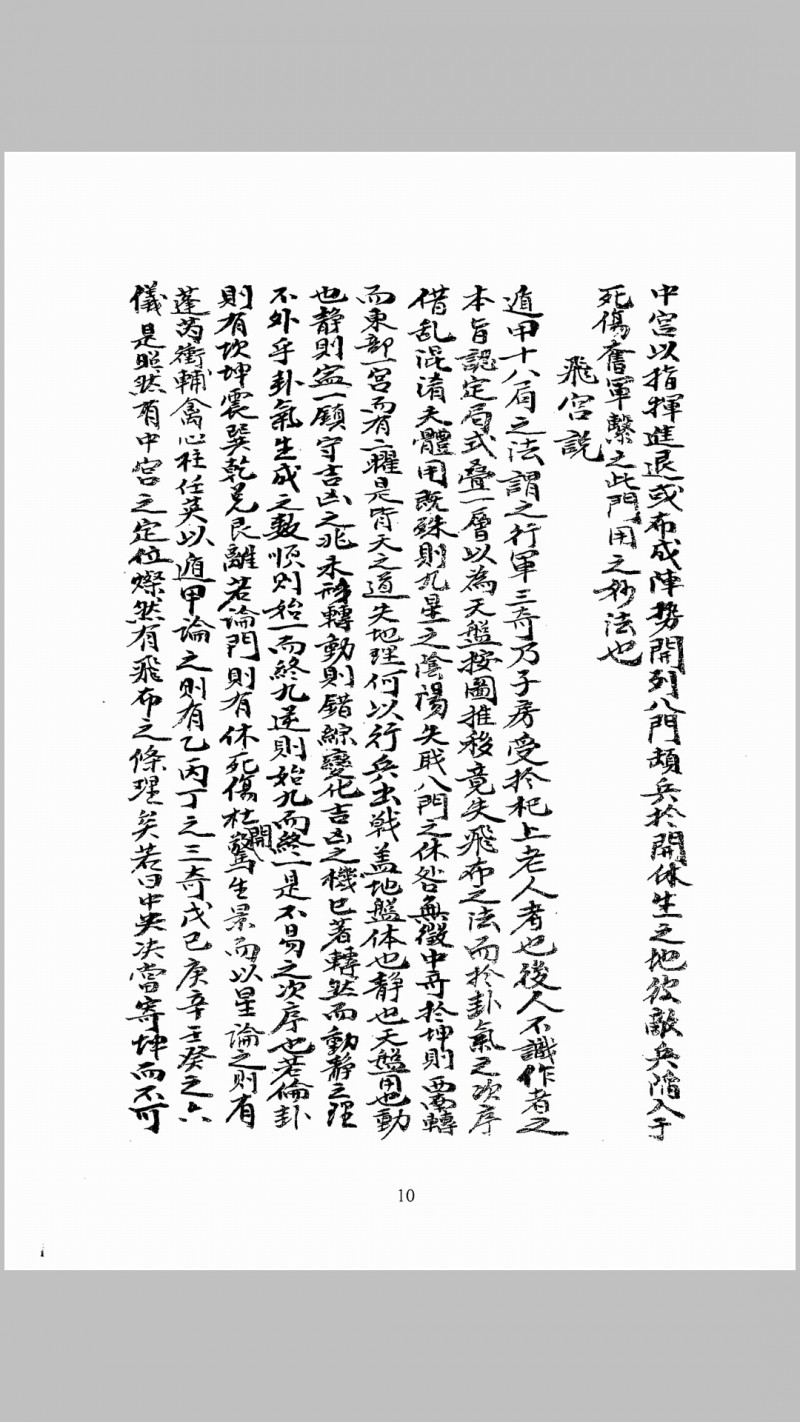 中宫以指揮進退或布成陣勢開列八門頓兵於開休生之地使敵兵陷入于
死傷奮軍擊之此門用之妙法也
飛宫説
遁甲十八局之法謂之行軍三奇乃子房受於杞上老人者也後人不識作者之
本旨認定局式叠一層以為天盤按圖推移竟失飛布之法而於卦氣之次序
借乱混淆夫體用既殊則九星之陰陽失戝八門之休咎無徵中寄於坤則西南轉
而東部一宮而有二曜是皆天之道失地理何以行兵出戦盖地盤体也静也天盤用也動
也静則定一鎮守吉凶之兆未形轉動則錯綜變化吉凶之機已著轉然而動静之理
不外乎卦氣生成之数順則始一而終九逆則始九而終一是不易之次序也若倫卦
則有坎坤震巽乾兑艮離若論門則有休死傷杜開驚生景而以星論之則有
蓬芮衝輔禽心柱任英以遁甲論之則有乙丙丁之三奇戊己庚辛壬癸之六
儀是照然有中宫之定位燦然有飛布之條理矣若曰中央决當寄坤而不可
10